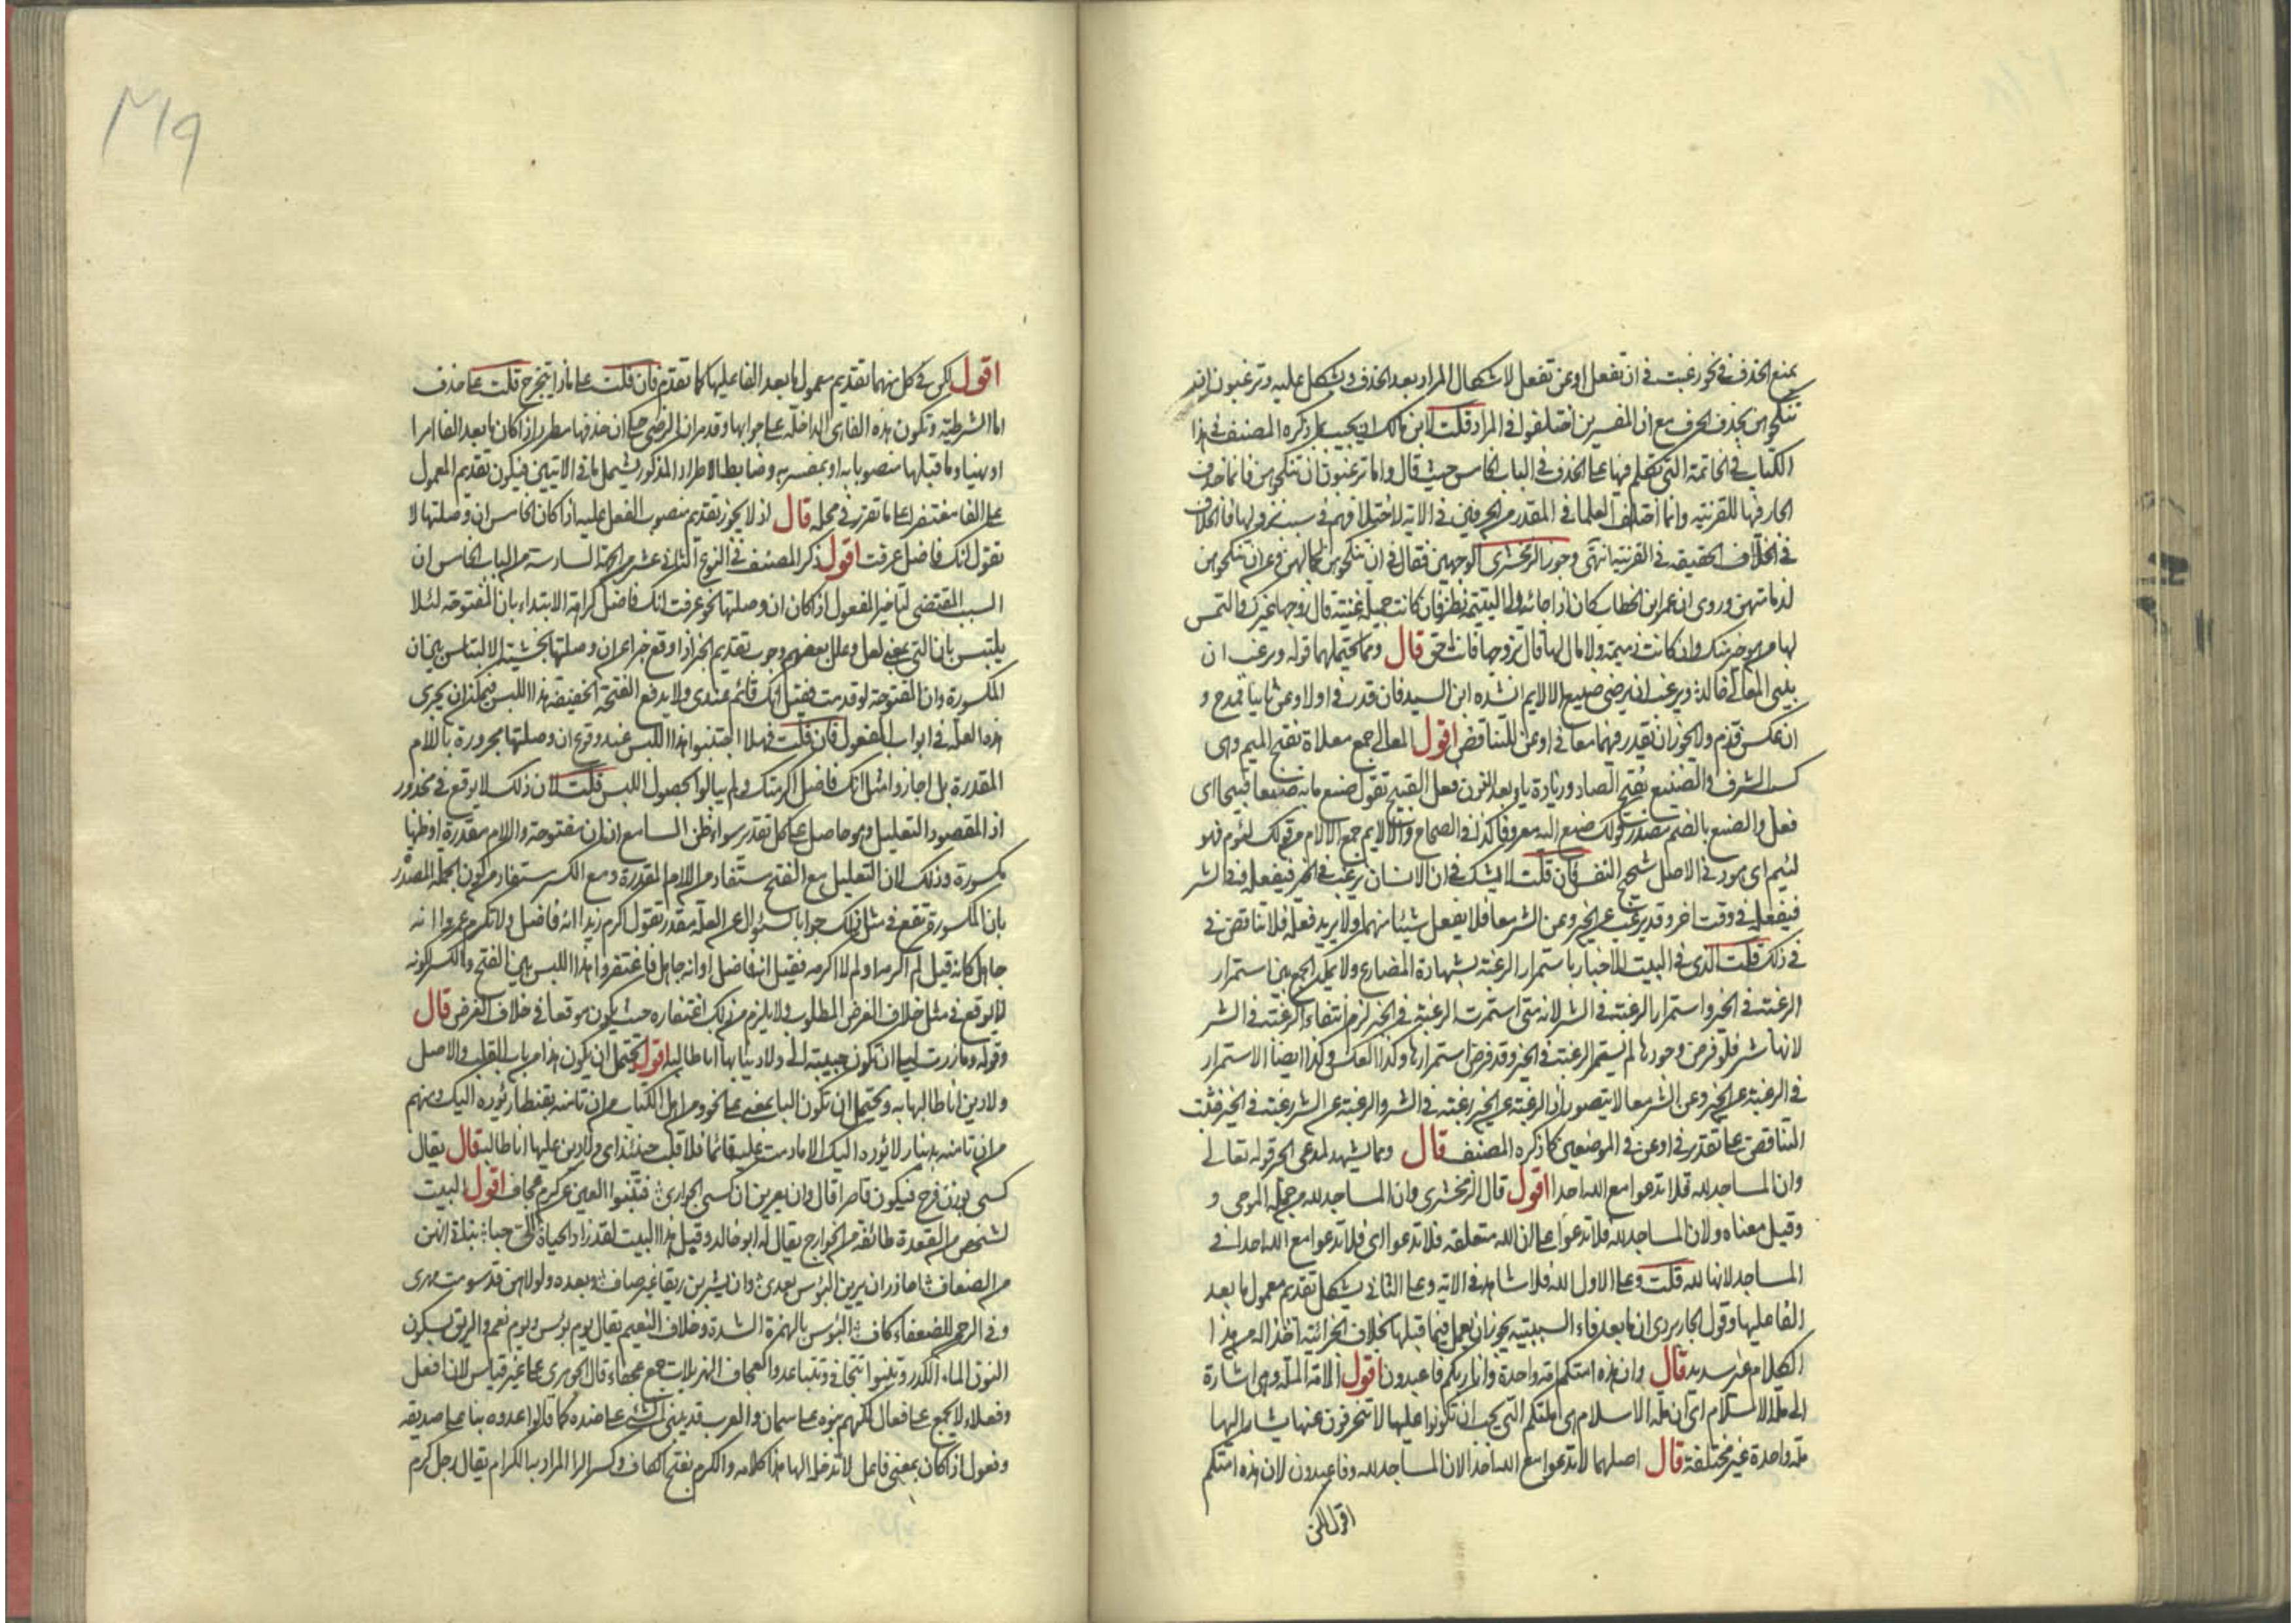 يمنع الحذف في نحو رغبت في ان تفعل او عن تفعل لاشكال المراد بعد الحذف ويشكل عليه وترغبون ان
تنكحوهن بحذف الحرف مع ان المفسرين اختلفوا في المراد قلت لابن مالك ان يجيب بما ذكره المصنف في هذا
الكتاب في الخاتمة التي تكلم فيها على الحذف في الباب الخامس حيث قال واما ترغبون ان تنكحوهن فانما حذف
الجار فيها للقرينة وانما اختلف العلما في المقدر من الحرفين في الاية لاختلافهم في سبب نزولها فالخلاف
في الخلاف الحقيقة في القرينة انتهى وجوز الزمخشرى الوجهين فقال في ان تنكحوهن لجمالهن وعن ان تنكحوهن
لدمامتهن وروى ان عمر ابن الخطاب كان اذا جائه ولى اليتيمة نظر فان كانت جميلة غنية قال زوجها غيرك والتمس
لها من هو خير منك وان كانت دميمة ولا مال لها قال تزوجها فانت احق قال ومما يحتملهما قوله ويرغب ان
يبنى المعالى خالد ويرغب ان يرضى صنيع الالايم انشده ابن السيد فان قدر في اولا وعن ثانيا فمدح و
ان عكس فذم ولا يجوز ان تقدر فيهما معا في او عن للتناقض اقول المعالى جمع معلاة بفتح الميم وهى
كسب الشرف والصنيع بفتح الصاد وزيادة ياء بعد النون فعل القبيح تقول صنع ما به صنيعا قبيحا اى
فعل والصنع بالضم مصدر قولك صنع اليه معروفا كذا في الصحاح والالايم جمع الالام من قولك لئوم فهو
لئيم اى هو دنى الاصل شحيح النفس فان قلت لا شك في ان الانسان يرغب في الخير فيفعله وفي الشر
فيفعله في وقت اخر وقد يرغب عن الخير وعن الشر معا فلا يفعل شيئا منهما ولا يريد فعله فلا تناقض في
في ذلك قلت الذى في البيت الاخبار باستمرار الرغبة بشهادة المضارع ولا يمكن الجمع بين استمرار
الرغبة في الخير واستمرار الرغبة في الشر لانه متى استمرت الرغبة في الخير لزم انتفاء الرغبة في الشر
لانها شر فلو فرض وجودها لم يستمر الرغبة في الخير وقد فرض استمرارها وكذا العكس وكذا ايضا الاستمرار
في الرغبة عن الخير وعن الشر معا لا يتصور اذ الرغبة عن الخير رغبة في الشر والرغبة عن الشر رغبة في الخير فثبت
التناقض على تقدير في او عن في الموضعين كما ذكره المصنف قال ومما يشهد لمدعى الجر قوله تعالى
وان المساجد لله فلا تدعوا مع الله احدا اقول قال الزمخشرى وان المساجد لله من جملة الموحى و
وقيل معناه ولان المساجد لله فلا تدعوا على ان اللام متعلقة فلا تدعوا اى فلا تدعوا مع الله احدا في
المساجد لانها لله قلت وعلى الاول فلا شاهد في الاية وعلى الثاني يشكل تقديم معمول ما بعد
الفا عليها وقول الجاربردى ان ما بعد فاء السببية يجوز ان يعمل فيما قبلها بخلاف الجزائية اخذا له من هذا
الكلام غير سديد قال وان هذه امتكم امة واحدة وانا ربكم فاعبدون اقول الامة الملة وهى اشارة
الى ملة الاسلام اى ان ملة الاسلام هى ملتكم التي يجب ان تكونوا عليها لا تنحرفون عنها يشار اليها
ملة واحدة غير مختلفة قال اصلهما لا تدعوا مع الله احدا لان المساجد لله وفاعبدون لان هذه امتكم
اقول لكن
٣١٩
اقول لكن في كل منهما تقديم معمول ما بعد الفا عليها كما تقدم فان قلت على ماذا يتخرج قلت على حذف
اما الشرطية وتكون هذه الفا هى الداخلة على جوابها وقد مر ان الرضى حكى ان حذفها مطرد اذا كان ما بعد الفا امرا
او نهيا وما قبلها منصوبا به او بمفسر به وضابط الاطراد المذكور يشمل ما في الايتين فيكون تقديم المعمول
على الفا مغتفرا على ما تقرر في محله قال اذ لا يجوز تقديم منصوب الفعل عليه اذا كان الخامس ان وصلتها لا
تقول انك فاضل عرفت اقول ذكر المصنف في النوع الثاني عشر من الجهة السادسة من الباب الخامس ان
السبب المقتضى لتاخير المفعول اذا كان ان وصلتها نحو عرفت انك فاضل كراهة الابتداء بان المفتوحة لئلا
يلتبس بان التي بمعنى لعل وعلل بعضهم وجوب تقديم الخبر اذا وقع خبرا عن ان وصلتها بخشية الالتباس بين ان
المكسورة وان المفتوحة لو قدمت فقيل انك قائم عندى ولا يدفع الفتحة الخفيفة هذا اللبس فيمكن ان يجرى
هذه العلة في ابواب المفعول فان قلت فهلا اجتنبوا هذا اللبس عند وقوع ان وصلتها مجرورة باللام
المقدرة بل اجازوا مثل انك فاضل اكرمتك ولم يبالوا بحصول اللبس قلت لان ذلك لا يوقع في محذور
اذ المقصود التعليل وهو حاصل على كل تقدير سواء ظن السامع ان ان مفتوحة واللام مقدرة او ظنها
مكسورة وذلك لان التعليل مع الفتح مستفاد من اللام المقدرة ومع الكسر مستفاد من كون الجملة المصدر
بان المكسورة تقع في مثل ذلك جوابا لسئوال عن العلة مقدر تقول اكرم زيدا انه فاضل ولا تكرم عمروا انه
جاهل كانه قيل لم اكرمه او لم لا اكرمه فقيل انه فاضل او انه جاهل فاغتفروا هذا اللبس بين الفتح والكسر لكونه
لا يوقع في مثل خلاف الغرض المطلوب ولا يلزم من ذلك اغتفاره حيث يكون موقعا في خلاف الغرض قال
وقوله وما زرت ليلى ان تكون حبيبة الى ولا دين بها انا طالبه اقول يحتمل ان يكون هذا من باب القلب والاصل
ولا دين انا طالبها به ويحتمل ان تكون البا بمعنى على نحو ومن اهل الكتاب من ان تامنه بقنطار يئوده اليك ومنهم
من ان تامنه بدينار لا يئوده اليك الا ما دمت عليه قائما فلا قلب حينئذ اى ولا دين عليها انا طالبه قال يقال
كسى بوزن فرح فيكون قاصرا قال وان يعرين ان كسى الجوارى فتنبوا العين عن كرم عجاف اقول البيت
لشخص من القعدة طائفة من الخوارج يقال له ابو خالد وقيل هذا البيت لقد زاد الحياة الى حبا بناتى انهن
من الضعاف احاذر ان يرين البؤس بعدى وان يشربن رنقا غير صاف وبعده ولولاهن قد سومت مهرى
وفي الرحمن للضعفاء كاف البؤس بالهمزة الشدة وخلاف النعيم يقال يوم بؤس ويوم نعم والرنق بسكون
النون الماء الكدر وتنبوا تتجافى وتتباعد والعجاف الهزيلات جمع عجفاء قال الجوهرى على غير قياس لان افعل
وفعلاء لا يجمع على فعال لكنهم بنوه على سمان والعرب قد يبنى الشئ على ضده كما قالوا عدوه بنا على صديقه
وفعول اذا كان بمعنى فاعل لا تدخله الها هذا كلامه والكرم بفتح الكاف وكسر الرا المراد به الكرام يقال رجل كرم